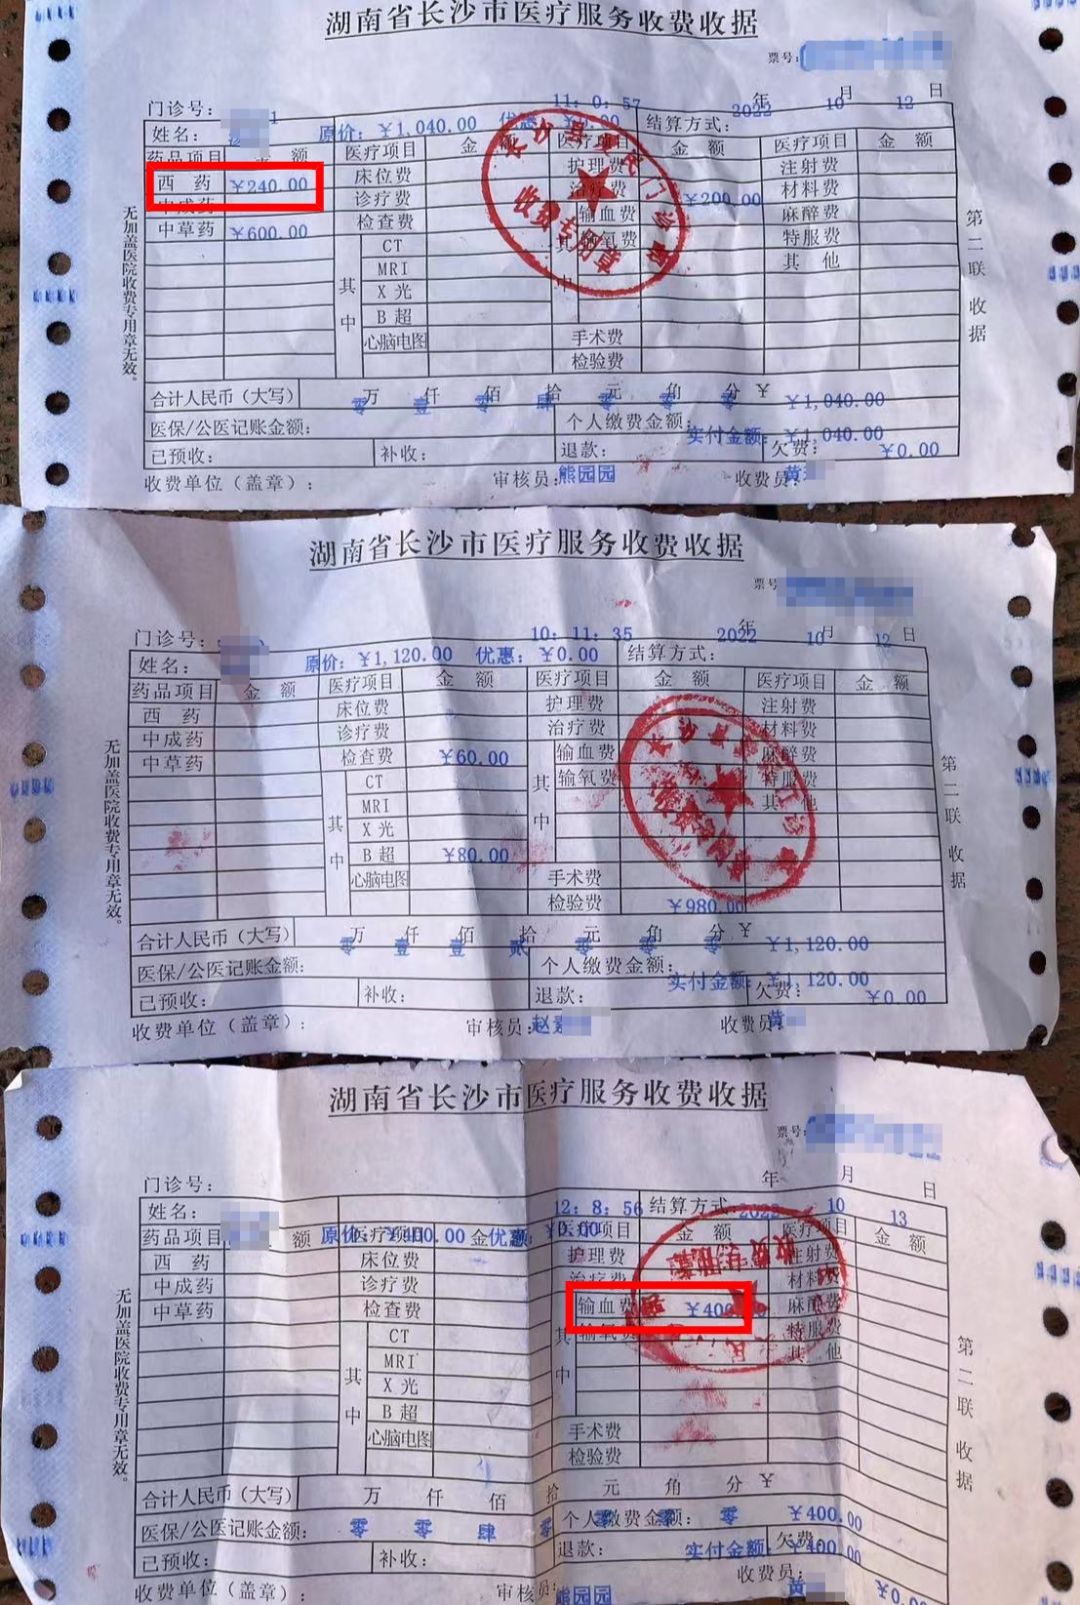 湖南省长沙市医疗服务收费收据
票号:
门诊号: 11: 0: 57 2022 年 10 月 12 日
姓名: 原价: ¥1,040.00 优惠: ¥0.00 结算方式:
药品项目 金 额 医疗项目 金 额 医疗项目 金 额 医疗项目 金 额
西 药 ¥240.00 床位费 护理费 注射费
中成药 诊疗费 治疗费 ¥200.00 材料费
中草药 ¥600.00 检查费 输血费 麻醉费
CT 输氧费 特服费
MRI 其 他
X 光
B 超 手术费
心脑电图 检验费
其中
其中
合计人民币(大写) 零 万 壹 仟 零 佰 肆 拾 零 元 零 角 零 分 ¥ ¥1,040.00
医保/公医记账金额: 个人缴费金额: 实付金额: ¥1,040.00
已预收: 补收: 退款: 欠费: ¥0.00
收费单位(盖章): 审核员: 熊园园 收费员: 黄
无加盖医院收费专用章无效。
第二联 收据
收费专用章
湖南省长沙市医疗服务收费收据
票号
门诊号: 10: 11: 35 2022 年 10 月 12 日
姓名: 原价: ¥1,120.00 优惠: ¥0.00 结算方式:
药品项目 金 额 医疗项目 金 额 医疗项目 金 额 医疗项目 金 额
西 药 床位费 护理费 注射费
中成药 诊疗费 治疗费 材料费
中草药 检查费 ¥60.00 输血费 麻醉费
CT 输氧费 特服费
MRI 其 他
X 光
B 超 ¥80.00 手术费
心脑电图 检验费 ¥980.00
其中
其中
合计人民币(大写) 零 万 壹 仟 壹 佰 贰 拾 零 元 零 角 零 分 ¥ ¥1,120.00
医保/公医记账金额: 个人缴费金额: 实付金额: ¥1,120.00
已预收: 补收: 退款: 欠费: ¥0.00
收费单位(盖章): 审核员: 赵 收费员: 黄
无加盖医院收费专用章无效。
第二联 收据
湖南省长沙市医疗服务收费收据
票号:
门诊号: 年 月 日
姓名: 12: 8: 56 结算方式: 2022 10 13
药品项目 额 原价: ¥400.00 医疗项目 金 优惠: ¥0.00 医疗项目 金 额 医疗项目 金 额
西 药 床位费 护理费 注射费
中成药 诊疗费 治疗费 材料费
中草药 检查费 输血费 ¥400 麻醉费
CT 输氧费 特服费
MRI 其 他
X 光
B 超 手术费
心脑电图 检验费
其中
其中
合计人民币(大写) 万 仟 佰 拾 元 角 分 ¥
医保/公医记账金额: 零 零 肆 零 零 零 零 个人缴费金额: ¥400.00
已预收: 补收: 退款: 实付金额: ¥400.00 欠费:
收费单位(盖章): 审核员: 熊园园 收费员: 黄 ¥0.00
无加盖医院收费专用章无效。
第二联 收据